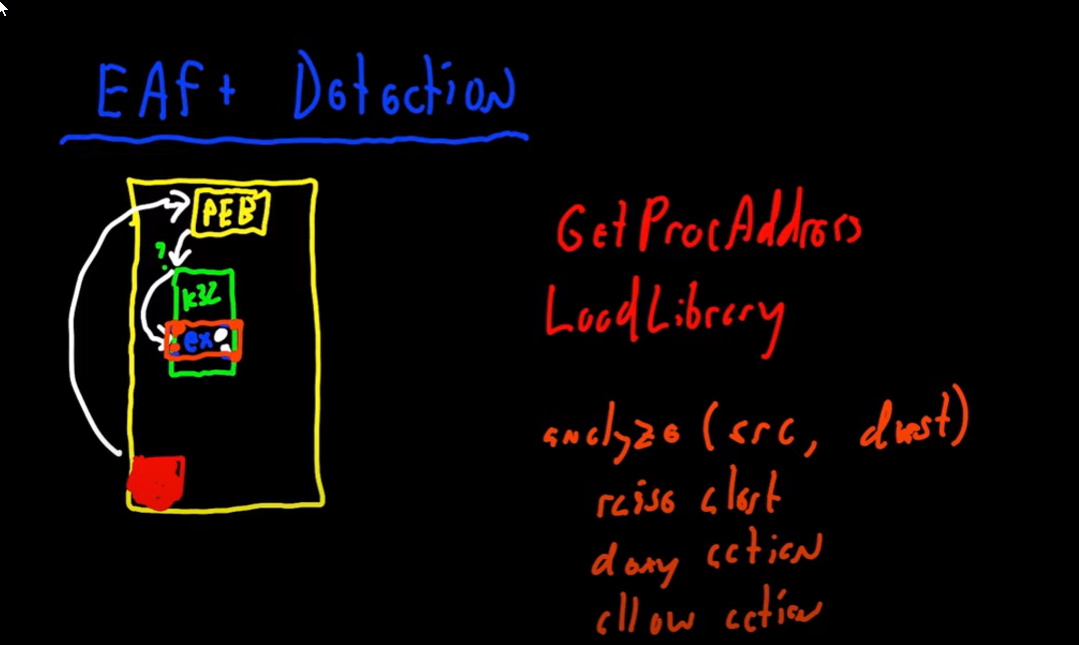 EAF+ Detection
PEB
?
k32
ex
GetProcAddress
LoadLibrary
analyze (src, dest)
raise alert
deny action
allow action